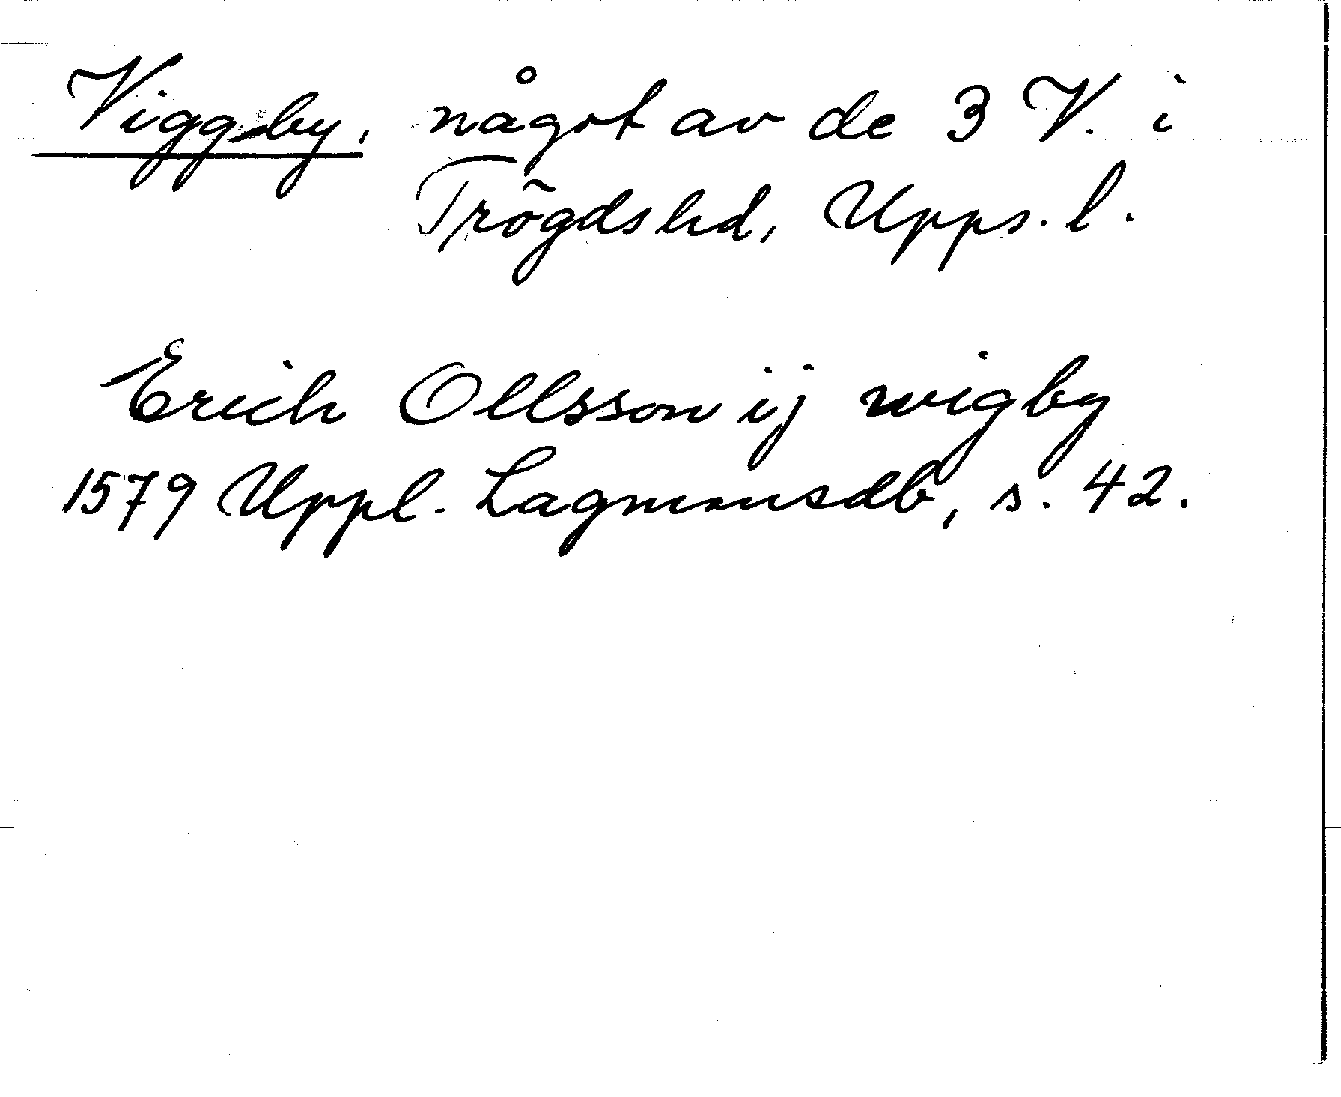 Viggby, något av de 3 V. i
Trögds hd, Upps. l.
Erich Ollsson ij wigby
1579 Uppl. Lagmansdb, s. 42.